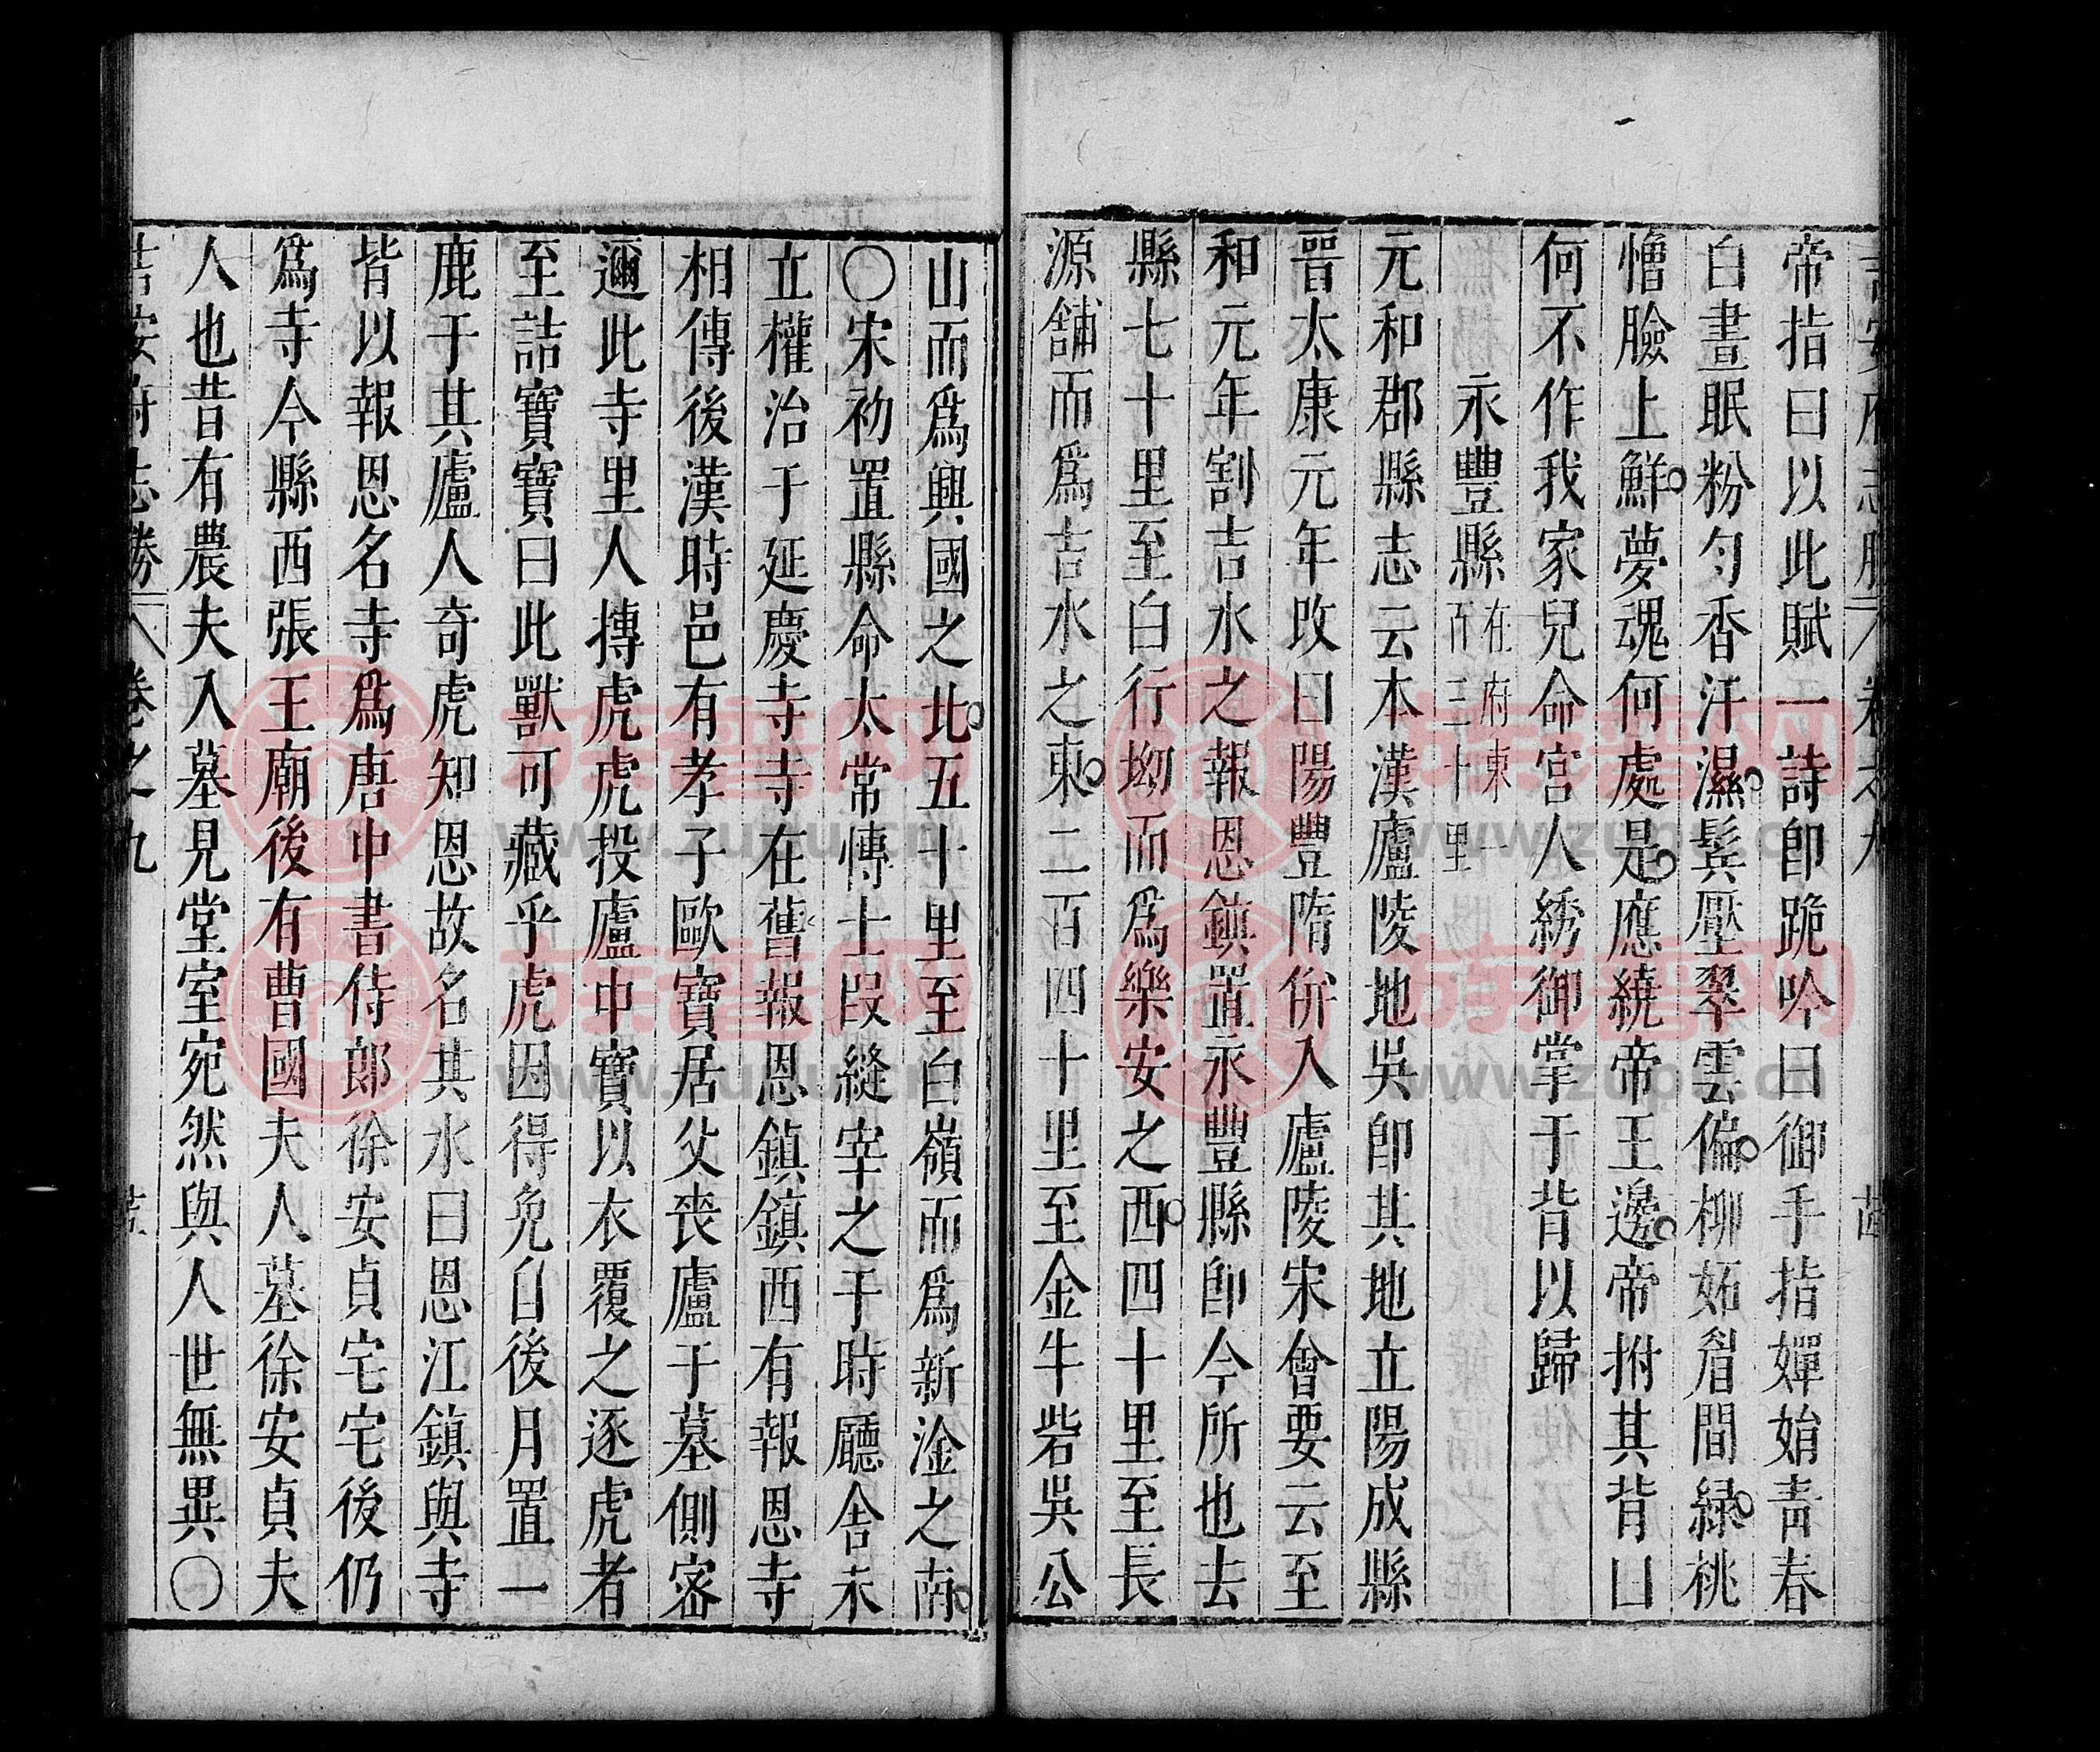 帝指曰以此賦一詩卽跪吟曰御手指嬋娟青春
白晝眠粉勻香汗濕鬂壓翠雲偏柳妬眉間綠桃
憎臉上鮮夢魂何處是應繞帝王邊帝拊其背曰
何不作我家兒命宮人綉御掌于背以歸
永豐縣在府東一百三十里
元和郡縣志云本漢廬陵地吳卽其地立陽成縣
晉太康元年改曰陽豐隋併入廬陵宋會要云至
和元年割吉水之報恩鎮置永豐縣卽今所也去
縣七十里至白行坳而爲樂安之西四十里至長
源舖而爲吉水之東二百四十里至金牛砦吳公
山而爲興國之北五十里至白嶺而爲新淦之南
〇宋初置縣命太常博士段縫宰之于時廳舍未
立權治于延慶寺寺在舊報恩鎮鎮西有報恩寺
相傳後漢時邑有孝子歐寶居父喪廬于墓側密
邇此寺里人摶虎虎投廬中寶以衣覆之逐虎者
至詰寶寶曰此獸可藏乎虎因得免自後月置一
鹿于其廬人奇虎知恩故名其水曰恩江鎮與寺
皆以報恩名寺爲唐中書侍郎徐安貞宅宅後仍
爲寺今縣西張王廟後有曹國夫人墓徐安貞夫
人也昔有農夫入墓見堂室宛然與人世無異〇
吉安府志勝 卷之九